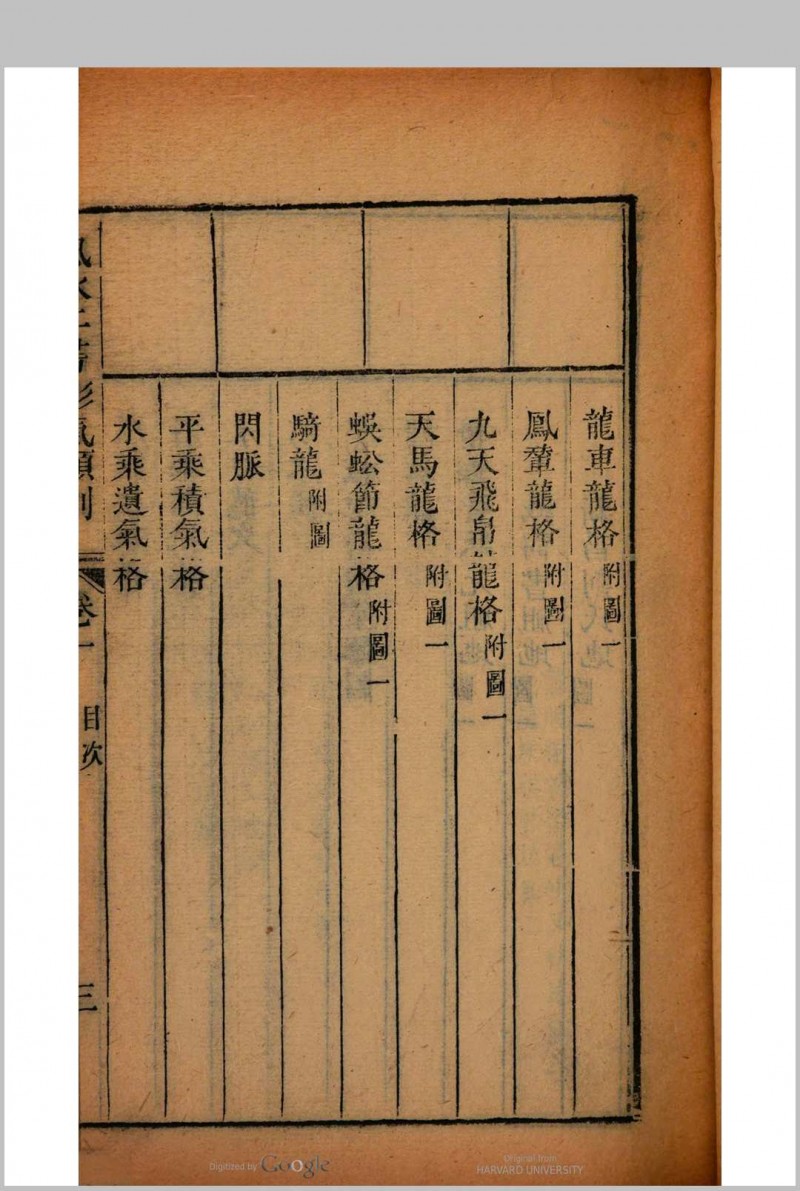 龍車龍格附圖一
鳳輦龍格附圖一
九天飛帛龍格附圖一
天馬龍格附圖一
蜈蚣節龍格附圖一
騎龍附圖
閃脈
平乘積氣格
水乘遺氣格
水二書形氣類則
卷一
目次
三
Digitized by Google
Original from
HARVARD UNIVERSITY